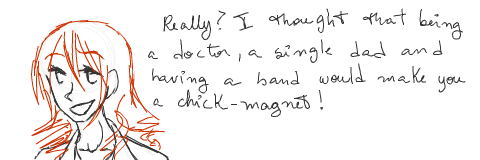 Really? I thought that being
a doctor, a single dad and
having a band would make you
a chick-magnet!